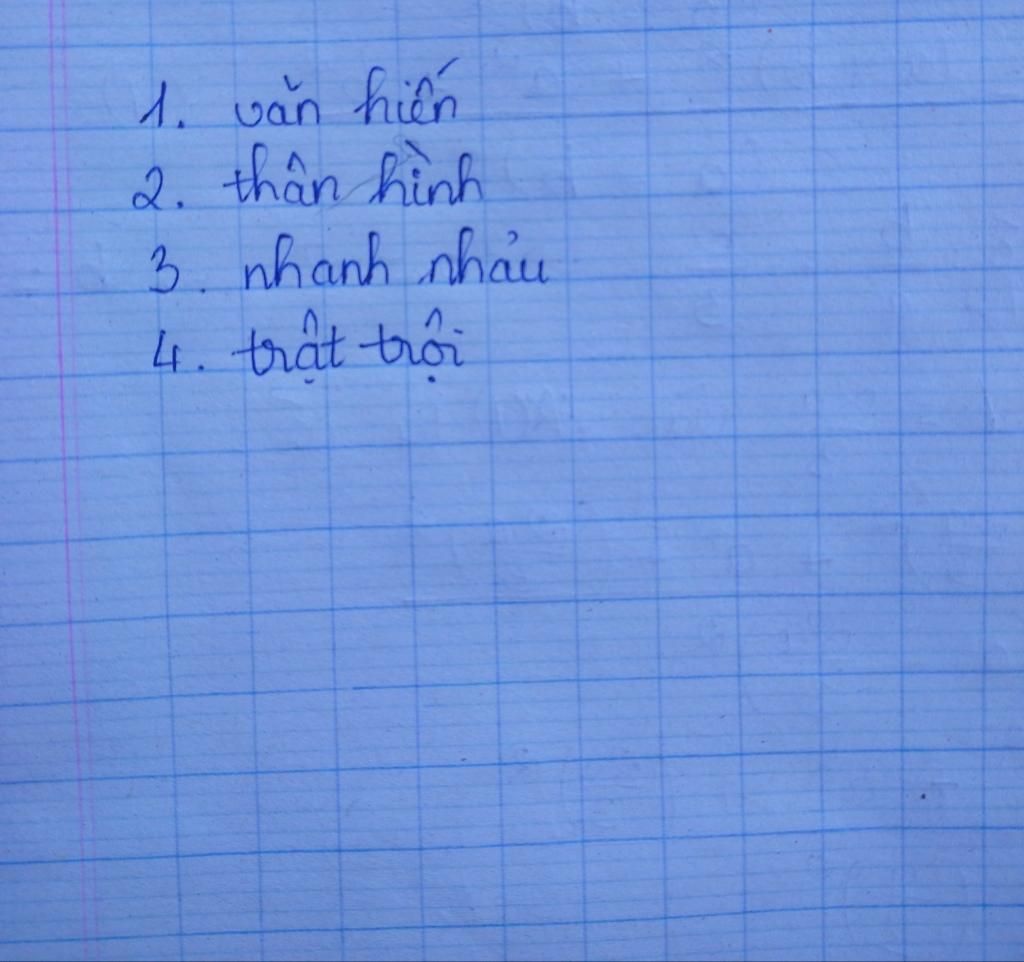 1. văn hiến
2. thân hình
3. nhanh nhảu
4. trật trội